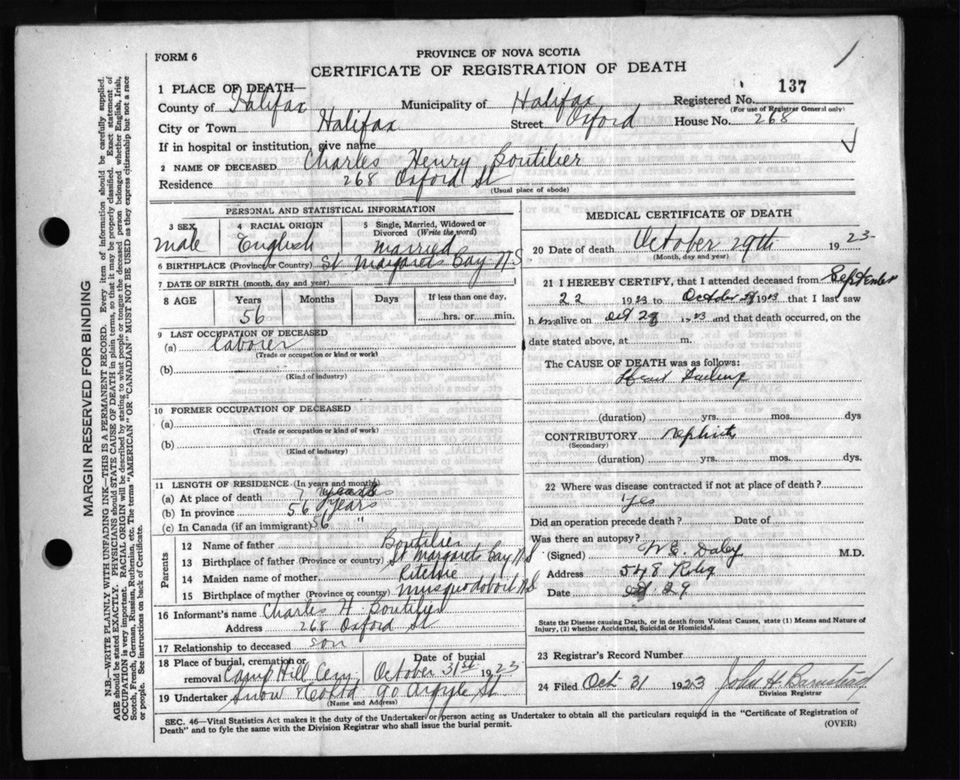 FORM 6
PROVINCE OF NOVA SCOTIA
CERTIFICATE OF REGISTRATION OF DEATH
1 PLACE OF DEATH—
137
County of Halifax Municipality of Halifax Registered No.
(For use of Registrar General only)
City or Town Halifax Street Oxford House No. 268
If in hospital or institution, give name
2 NAME OF DECEASED Charles Henry Boutilier
Residence 268 Oxford St
(Usual place of abode)
PERSONAL AND STATISTICAL INFORMATION
3 SEX male
4 RACIAL ORIGIN English
5 Single, Married, Widowed or Divorced (Write the word) married
6 BIRTHPLACE (Province or Country) St Margarets Bay N.S
7 DATE OF BIRTH (month, day and year)
8 AGE Years 56 Months Days If less than one day, hrs. or min.
9 LAST OCCUPATION OF DECEASED
(a) laborer
(Trade or occupation or kind of work)
(b)
(Kind of industry)
10 FORMER OCCUPATION OF DECEASED
(a)
(Trade or occupation or kind of work)
(b)
(Kind of industry)
11 LENGTH OF RESIDENCE (In years and months)
(a) At place of death 7 years
(b) In province 56 years
(c) In Canada (if an immigrant) 56 "
Parents
12 Name of father Boutilier
13 Birthplace of father (Province or country) St Margarets Bay N S
14 Maiden name of mother Ritchie
15 Birthplace of mother (Province or country) Musquodoboit N S
16 Informant's name Charles H. Boutilier
Address 268 Oxford St
17 Relationship to deceased son
18 Place of burial, cremation or removal Camp Hill Cem, Date of burial October 31st 1923
19 Undertaker Snow & Co Ltd 90 Argyle St
(Name and Address)
MEDICAL CERTIFICATE OF DEATH
20 Date of death October 29th 1923
(Month, day and year)
21 I HEREBY CERTIFY, that I attended deceased from September
22 1923 to October 29 1923 that I last saw
h im alive on Oct 29 1923 and that death occurred, on the
date stated above, at m.
The CAUSE OF DEATH was as follows:
Heart Failure
(duration) yrs. mos. dys
CONTRIBUTORY nephritis
(Secondary)
(duration) yrs. mos. dys.
22 Where was disease contracted if not at place of death?
Yes
Did an operation precede death? Date of
Was there an autopsy?
(Signed) W E. Daley M.D.
Address 548 Robie
Date Oct 29
State the Disease causing Death, or in death from Violent Causes, state (1) Means and Nature of
Injury, (2) whether Accidental, Suicidal or Homicidal.
23 Registrar's Record Number
24 Filed Oct 31 1923 John H. Barnstead
Division Registrar
SEC. 46—Vital Statistics Act makes it the duty of the Undertaker or person acting as Undertaker to obtain all the particulars required in the "Certificate of Registration of
Death"—and to fyle the same with the Division Registrar who shall issue the burial permit.
(OVER)
MARGIN RESERVED FOR BINDING
N.B.—WRITE PLAINLY WITH UNFADING INK—THIS IS A PERMANENT RECORD. Every item of information should be carefully supplied.
AGE should be stated EXACTLY. PHYSICIANS should STATE CAUSE OF DEATH in plain terms, so that it may be properly classified. Exact statement of
OCCUPATION is very important. RACIAL ORIGIN will be described by stating to what people or tongue the deceased person belonged whether English, Irish,
Scotch, French, German, Russian, Ruthenian, etc. The terms "AMERICAN" OR "CANADIAN" MUST NOT BE USED as they express citizenship but not a race
or people. See instructions on back of Certificate.